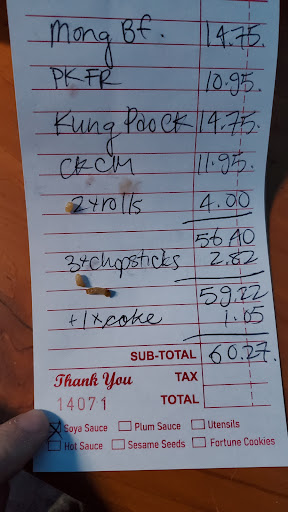 Mong Bf. 14.75.
PK FR 10.95.
Kung Pao CK 14.75.
CK CM 11.95.
2+rolls 4.00
56.40
3+chopsticks 2.82
59.22
+1xcoke 1.05
SUB-TOTAL 60.27.
Thank You TAX
14071 TOTAL
Soya Sauce Plum Sauce Utensils
Hot Sauce Sesame Seeds Fortune Cookies